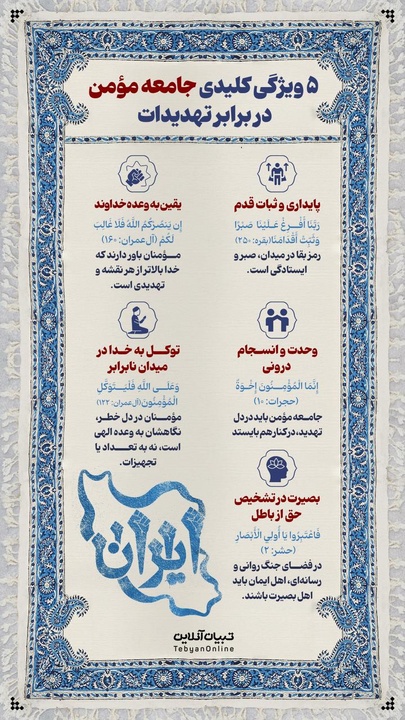 ۵ ویژگی کلیدی جامعه مؤمن
در برابر تهدیدات
پایداری و ثبات قدم
رَبَّنَا أَفْرِغْ عَلَيْنَا صَبْرًا
وَثَبِّتْ أَقْدَامَنَا(بقره: ۲۵۰)
رمز بقا در میدان، صبر و
ایستادگی است.
یقین به وعده خداوند
إِن يَنصُرْكُمُ اللَّهُ فَلَا غَالِبَ
لَكُمْ (آل‌عمران: ۱۶۰)
مــؤمنان باور دارند که
خدا بالاتر از هر نقشه و
تهدیدی است.
وحدت و انسجام
درونی
إِنَّمَا الْمُؤْمِنُونَ إِخْوَةٌ
(حجرات: ۱۰)
جامعه مؤمن باید در دل
تهدید، در کنار هم بایستد
توکــل به خــدا در
میدان نابرابر
وَعَلَى اللَّهِ فَلْيَتَوَكَّلِ
الْمُؤْمِنُونَ(آل‌عمران: ۱۲۲)
مؤمنــان در دل خطر،
نگاهشان به وعده الهی
است، نه به تعــداد یا
تجهیزات.
بصیرت در تشخیص
حق از باطل
فَاعْتَبِرُوا يَا أُولِي الْأَبْصَارِ
(حشر: ۲)
در فضــای جنگ روانی و
رسانه‌ای، اهل ایمان باید
اهل بصیرت باشند.
ایران
تبیان آنلاین
TebyanOnline